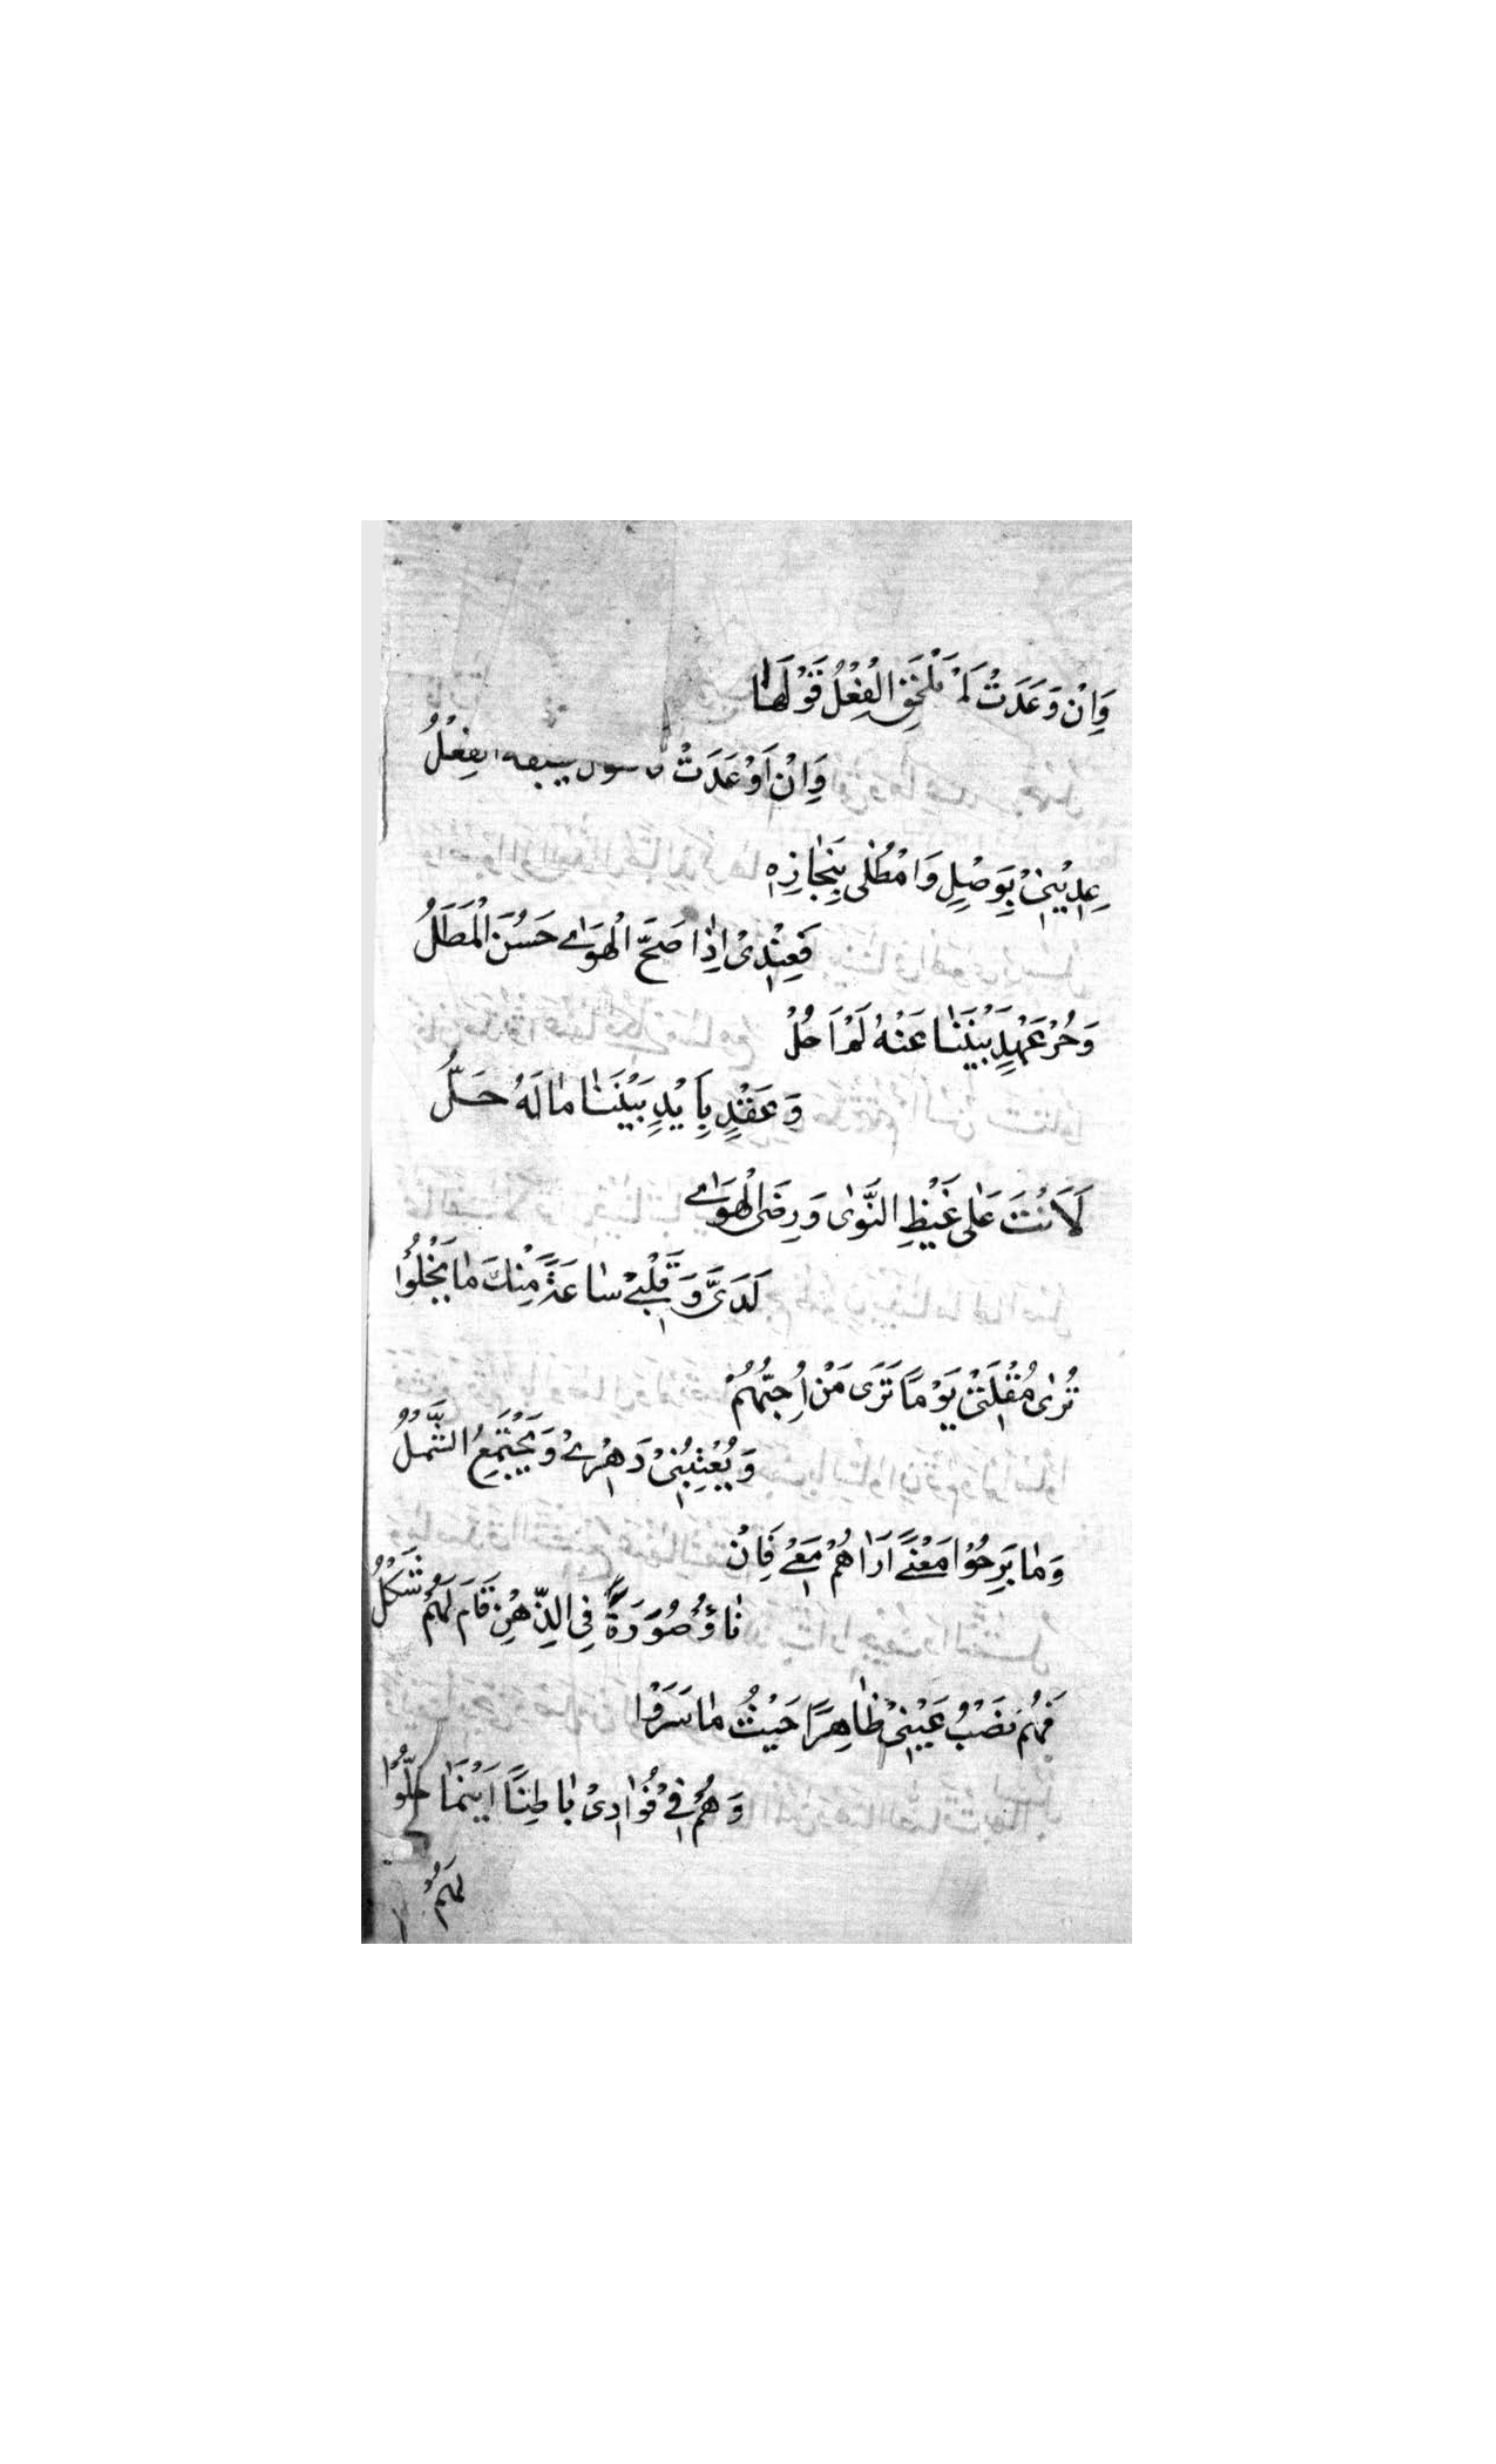 وَاِنْ وَعَدَتْ لَمْ يَلْحَقِ الْفِعْلُ قَوْلَهَا
وَاِنْ اَوْعَدَتْ يسبقه الفِعْلُ
عِدِيْنِيْ بِوَصْلٍ وَامْطُلِى بِنِجَازِهِ
فَعِنْدِىْ اِذَا صَحَّ الْهَوٰى حَسُنَ الْمَطَلُ
وَحُرْ عَهْدٍ بَيْنَنَا عَنْهُ لَمْ اَحُلْ
وَعَقْدٍ بِاَيْدٍ بَيْنَنَا مَالَهُ حَلُّ
لَاَنْتَ عَلٰى غَيْظِ النَّوٰى وَرِضَى الْهَوٰى
لَدَىَّ وَقَلْبِىْ سَاعَةً مِنْكَ مَا يَخْلُوْا
تُرٰى مُقْلَتِىْ يَوْمًا تَرَى مَنْ اُحِبُّهُمْ
وَيُعْتِبُنِىْ دَهْرِىْ وَيَجْتَمِعُ الشَّمْلُ
وَمَا بَرِحُوْا مَعْنًى اَرَاهُمْ مَعِىْ فَاِنْ
نَاؤُ صُوْرَةً فِى الذِّهْنِ قَامَ لَهُمْ شَكْلُ
فَهُمْ نَصْبُ عَيْنِىْ ظَاهِرًا حَيْثُ مَا سَرَوْا
وَهُمْ فِىْ فُوَادِىْ بَاطِنًا اَيْنَمَا حَلُّوْا
لَهُمْ